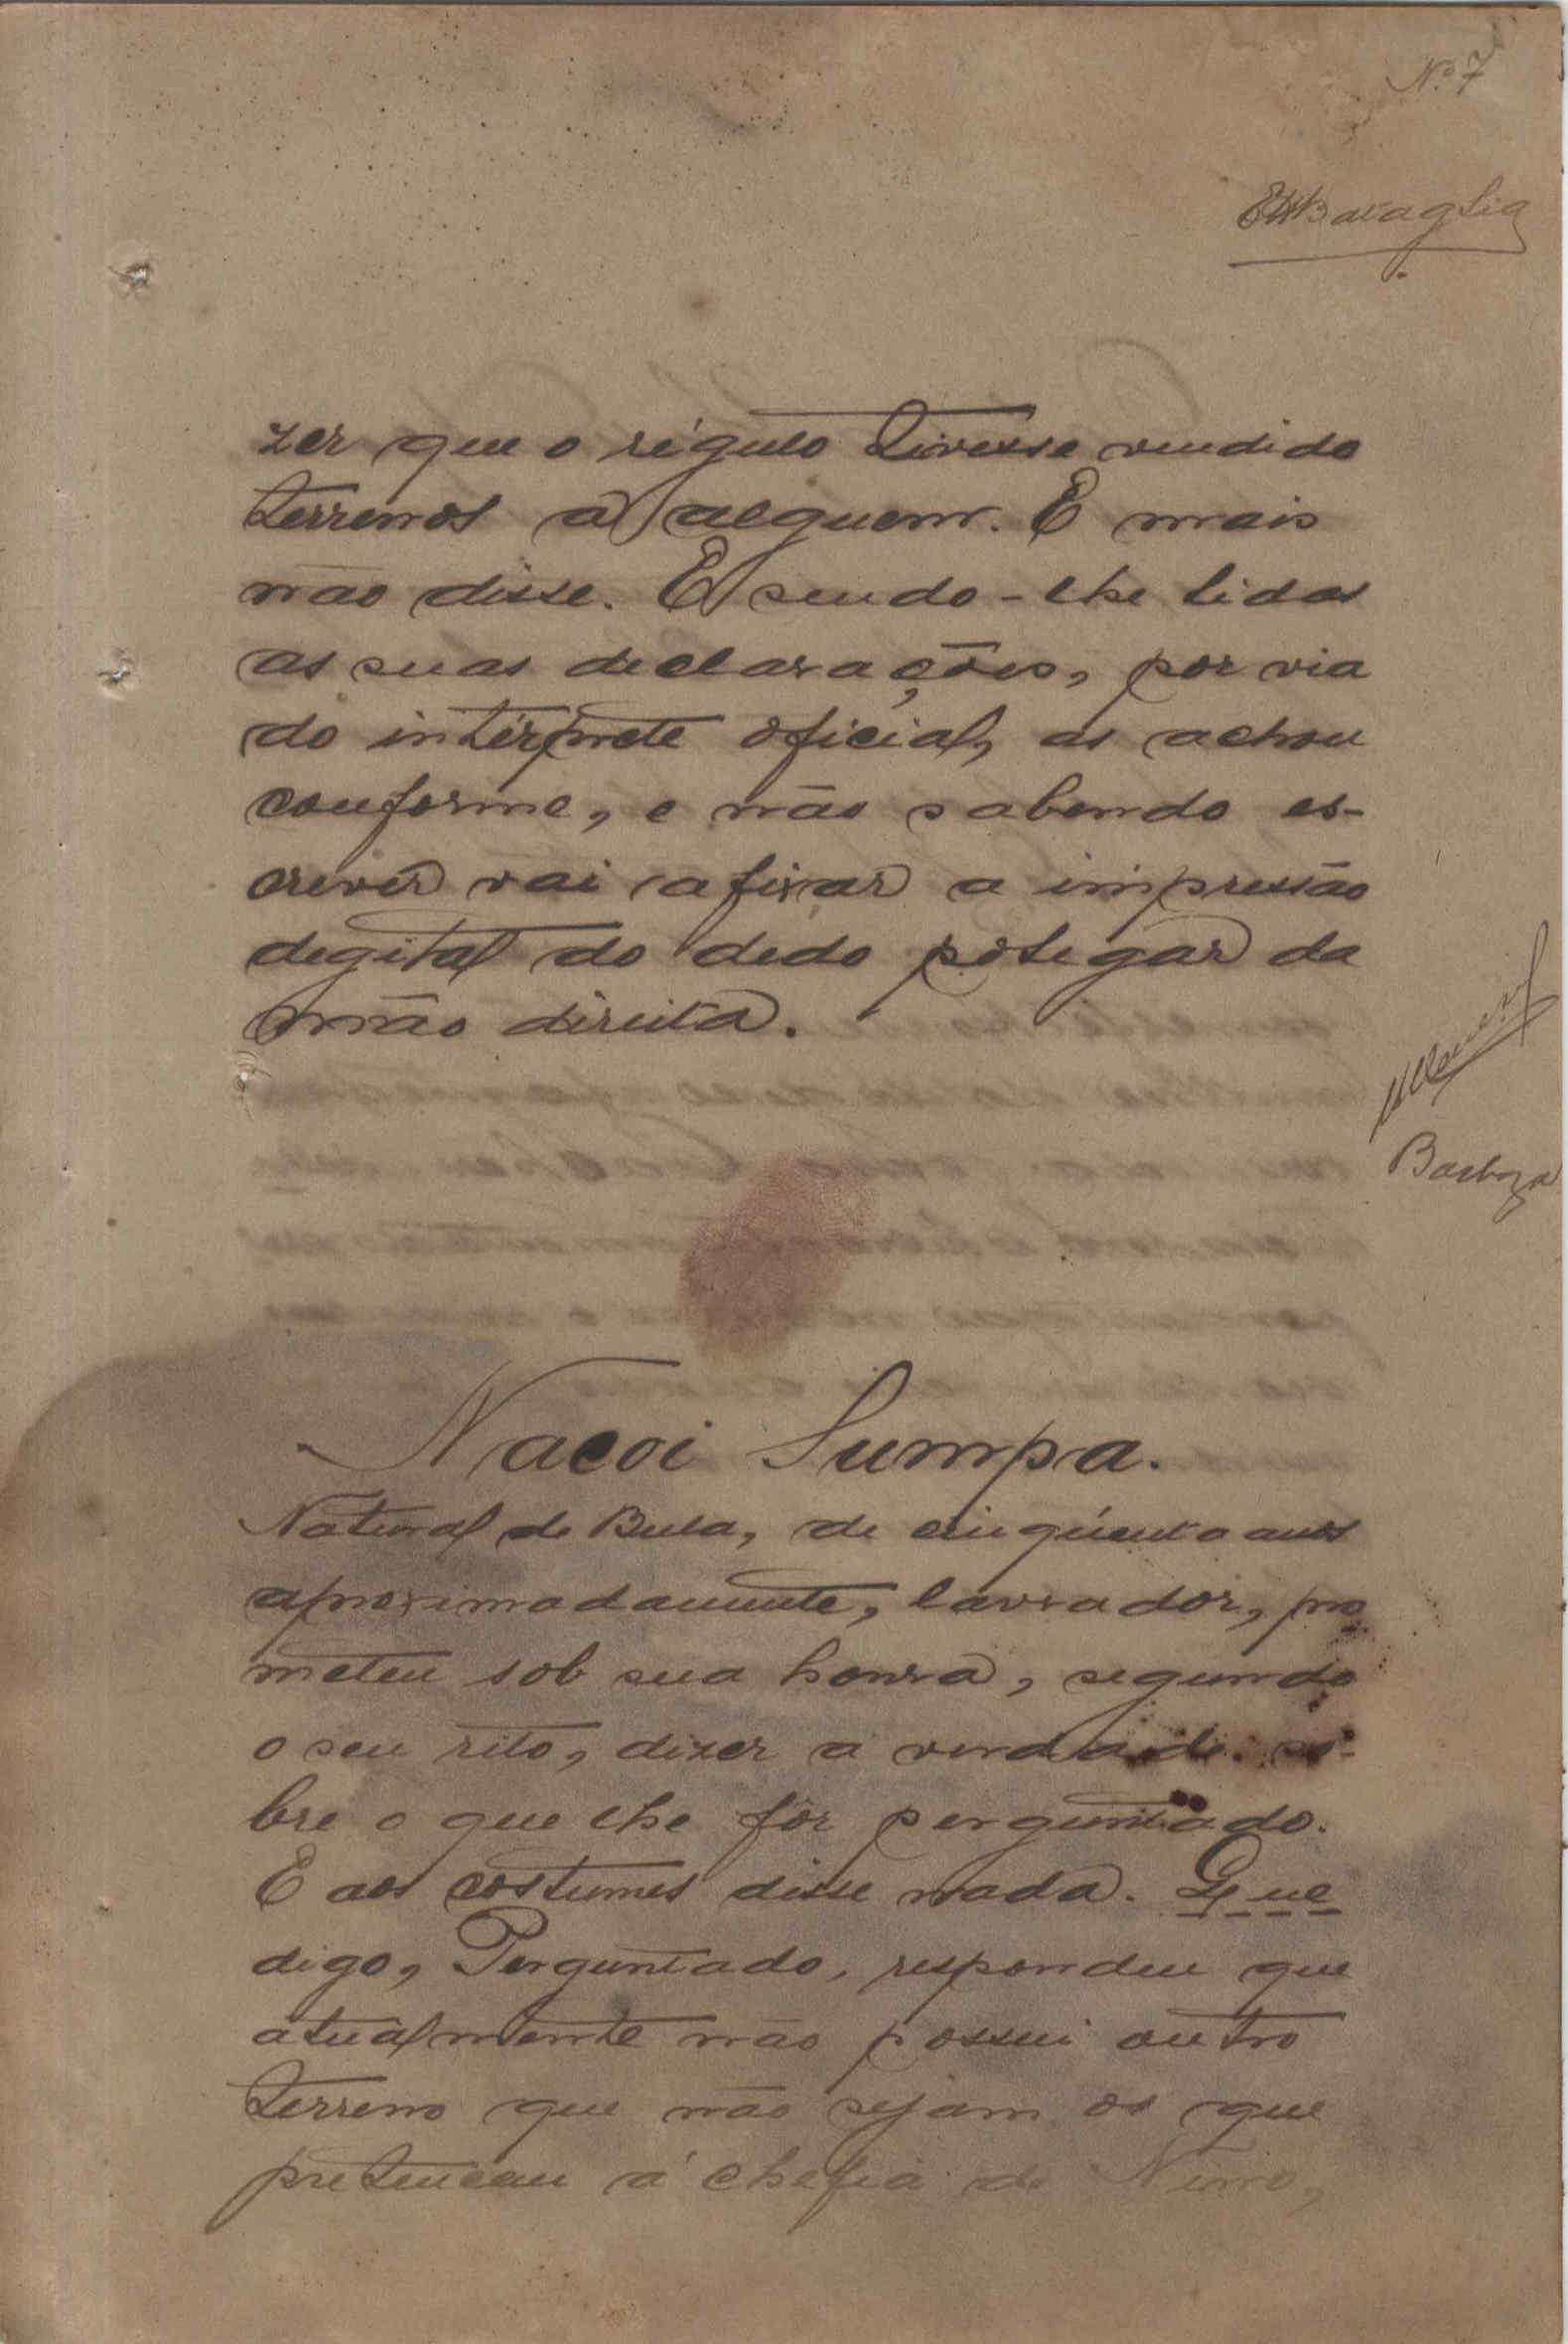 Nº 7
zer que o régulo tivesse vendido
terrenos a alguem. E mais
não disse. E sendo-lhe lidas
as suas declarações, por via
do intérprete oficial, as achou
conforme, e não sabendo es-
crever vai afixar a impressão
degital do dedo polegar da
mão direita.
Barboza
Nacoi Sumpa.
Natural de Bula, de cinqüenta anos
aproximadamente, lavrador, pro
meteu sob sua honra, segundo
o seu rito, dizer a verdade sô-
bre o que lhe fôr perguntado.
E aos costumes disse nada. Que
digo, Perguntado, respondeu que
atualmente não possui outro
terreno que não sejam os que
pretencem á chefia de